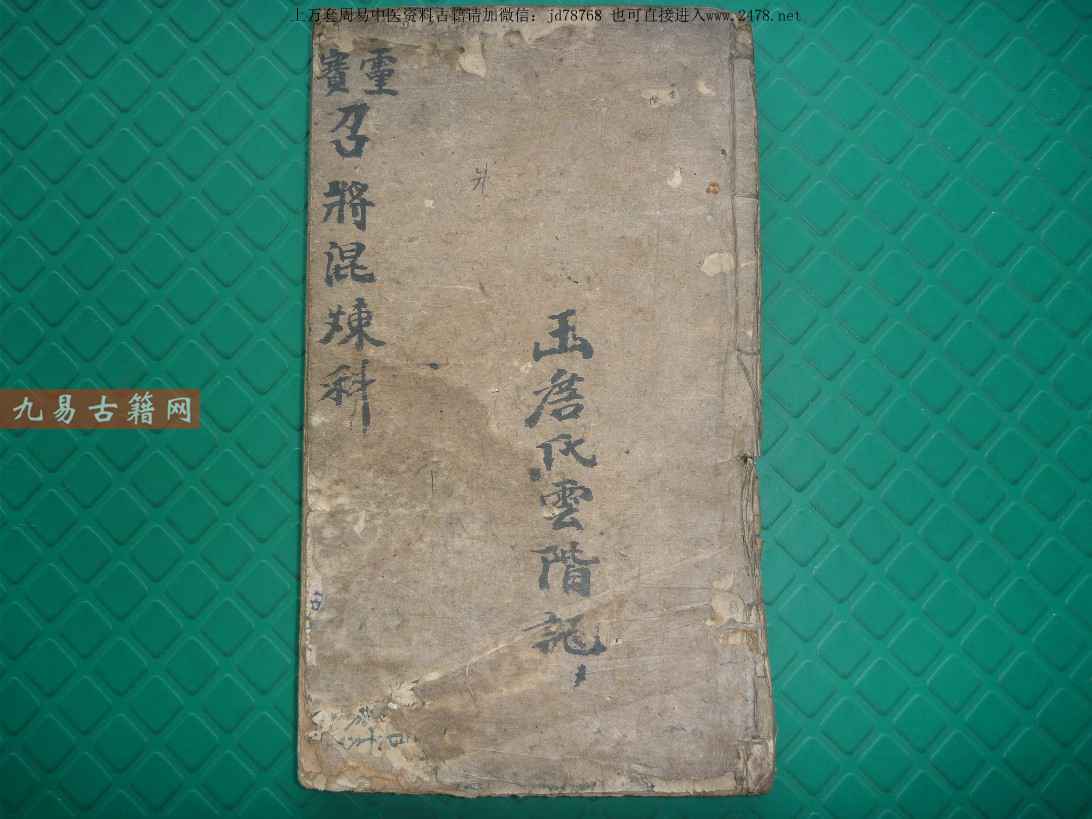 上万套周易中医资料古籍请加微信：jd78768 也可直接进入www.2478.net
靈寳召將混煉科
詹氏雲階記
九易古籍网